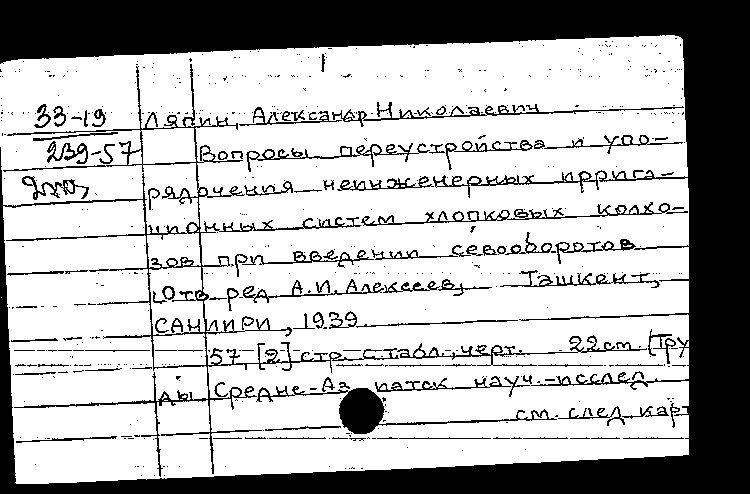 33-19
239-57
Ляпин, Александр Николаевич
Вопросы переустройства и упо-
рядочения неинженерных иррига-
ционных систем хлопковых колхо-
зов при введении севооборотов
Отв ред А.И. Алексеев, Ташкент,
САНИИРИ, 1939
57, [2] стр. с табл., черт. 22 см. (Тру
ды Средне-Аз науч.-исслед.
см. след. карт